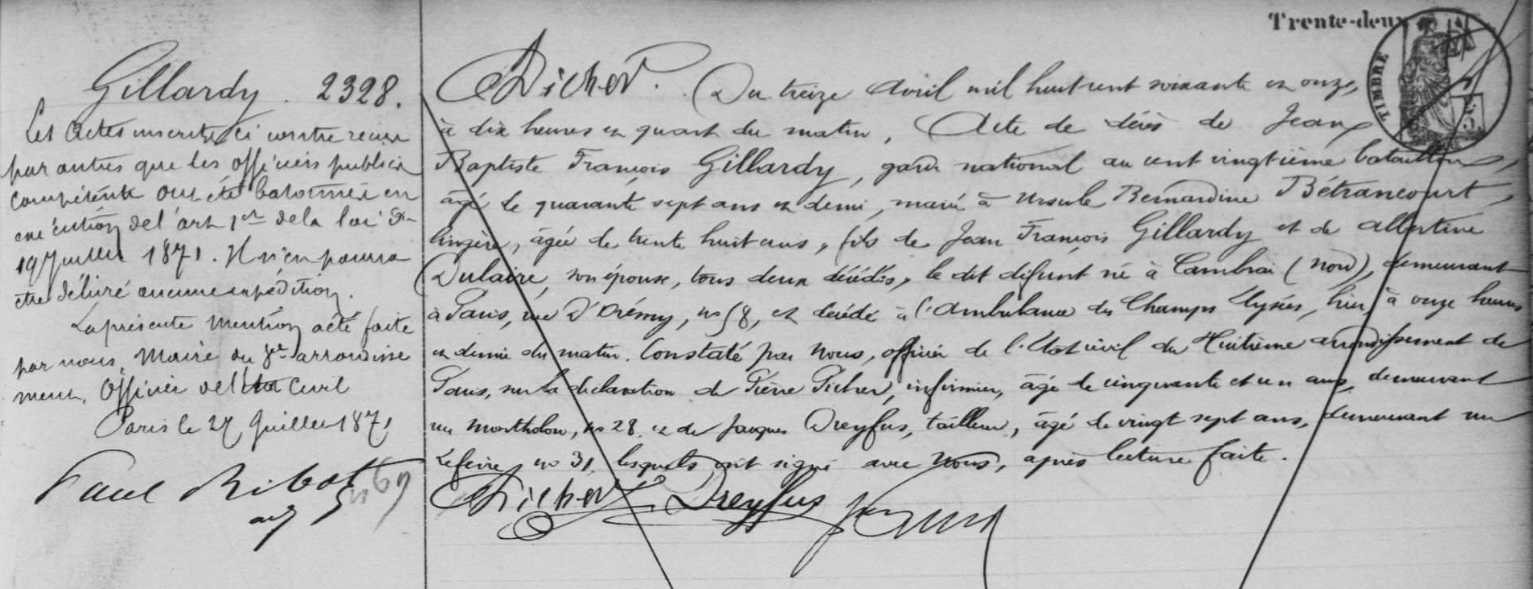 Trente-deux
TIMBRE
Gillardy. 2328.
Les actes inscrits ci contre reçus
par autres que les officiers publics
compétents ont été batonnés en
exécution de l'art 1er de la loi du
19 Juillet 1871. Il n'en pourra
être délivré aucune expédition.
La présente mention a été faite
par nous, Maire du 8e arrondisse
ment, Officier de l'Etat Civil
Paris le 27 Juillet 1871
Paul Ribot
adj
Picher. Du treize Avril mil huit cent soixante et onze,
à dix heures un quart du matin, Acte de décès de Jean
Baptiste François Gillardy, garde national au cent vingtième bataillon,
âgé de quarante sept ans et demi, marié à Ursule Bernardine Bétrancourt,
lingère, âgée de trente huit ans, fils de Jean François Gillardy et de Albertine
Dulaire, son épouse, tous deux décédés, le dit défunt né à Cambrai (Nord), demeurant
à Paris, rue D'Orémy, no 8, est décédé à l'Ambulance des Champs Elysées, hier, à onze heures
et demie du matin. Constaté par Nous, officier de l'Etat civil du Huitième arrondissement de
Paris, sur la déclaration de Pierre Picher, infirmier, âgé de cinquante et un ans, demeurant
rue Montholon, no 28, et de Jacques Dreyfus, tailleur, âgé de vingt sept ans, demeurant rue
Lefèvre, no 31, lesquels ont signé avec Nous, après lecture faite.
Picher Dreyfus